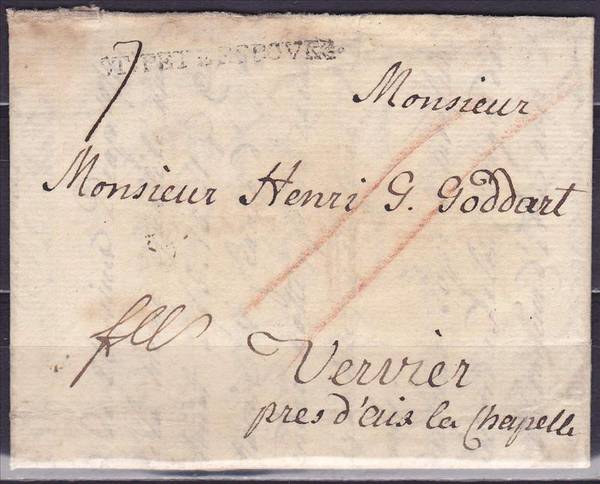 7
ST. PETERSBOURG
Monsieur
Monsieur Henri G. Goddart
Vervier
pres d'aix la Chapelle